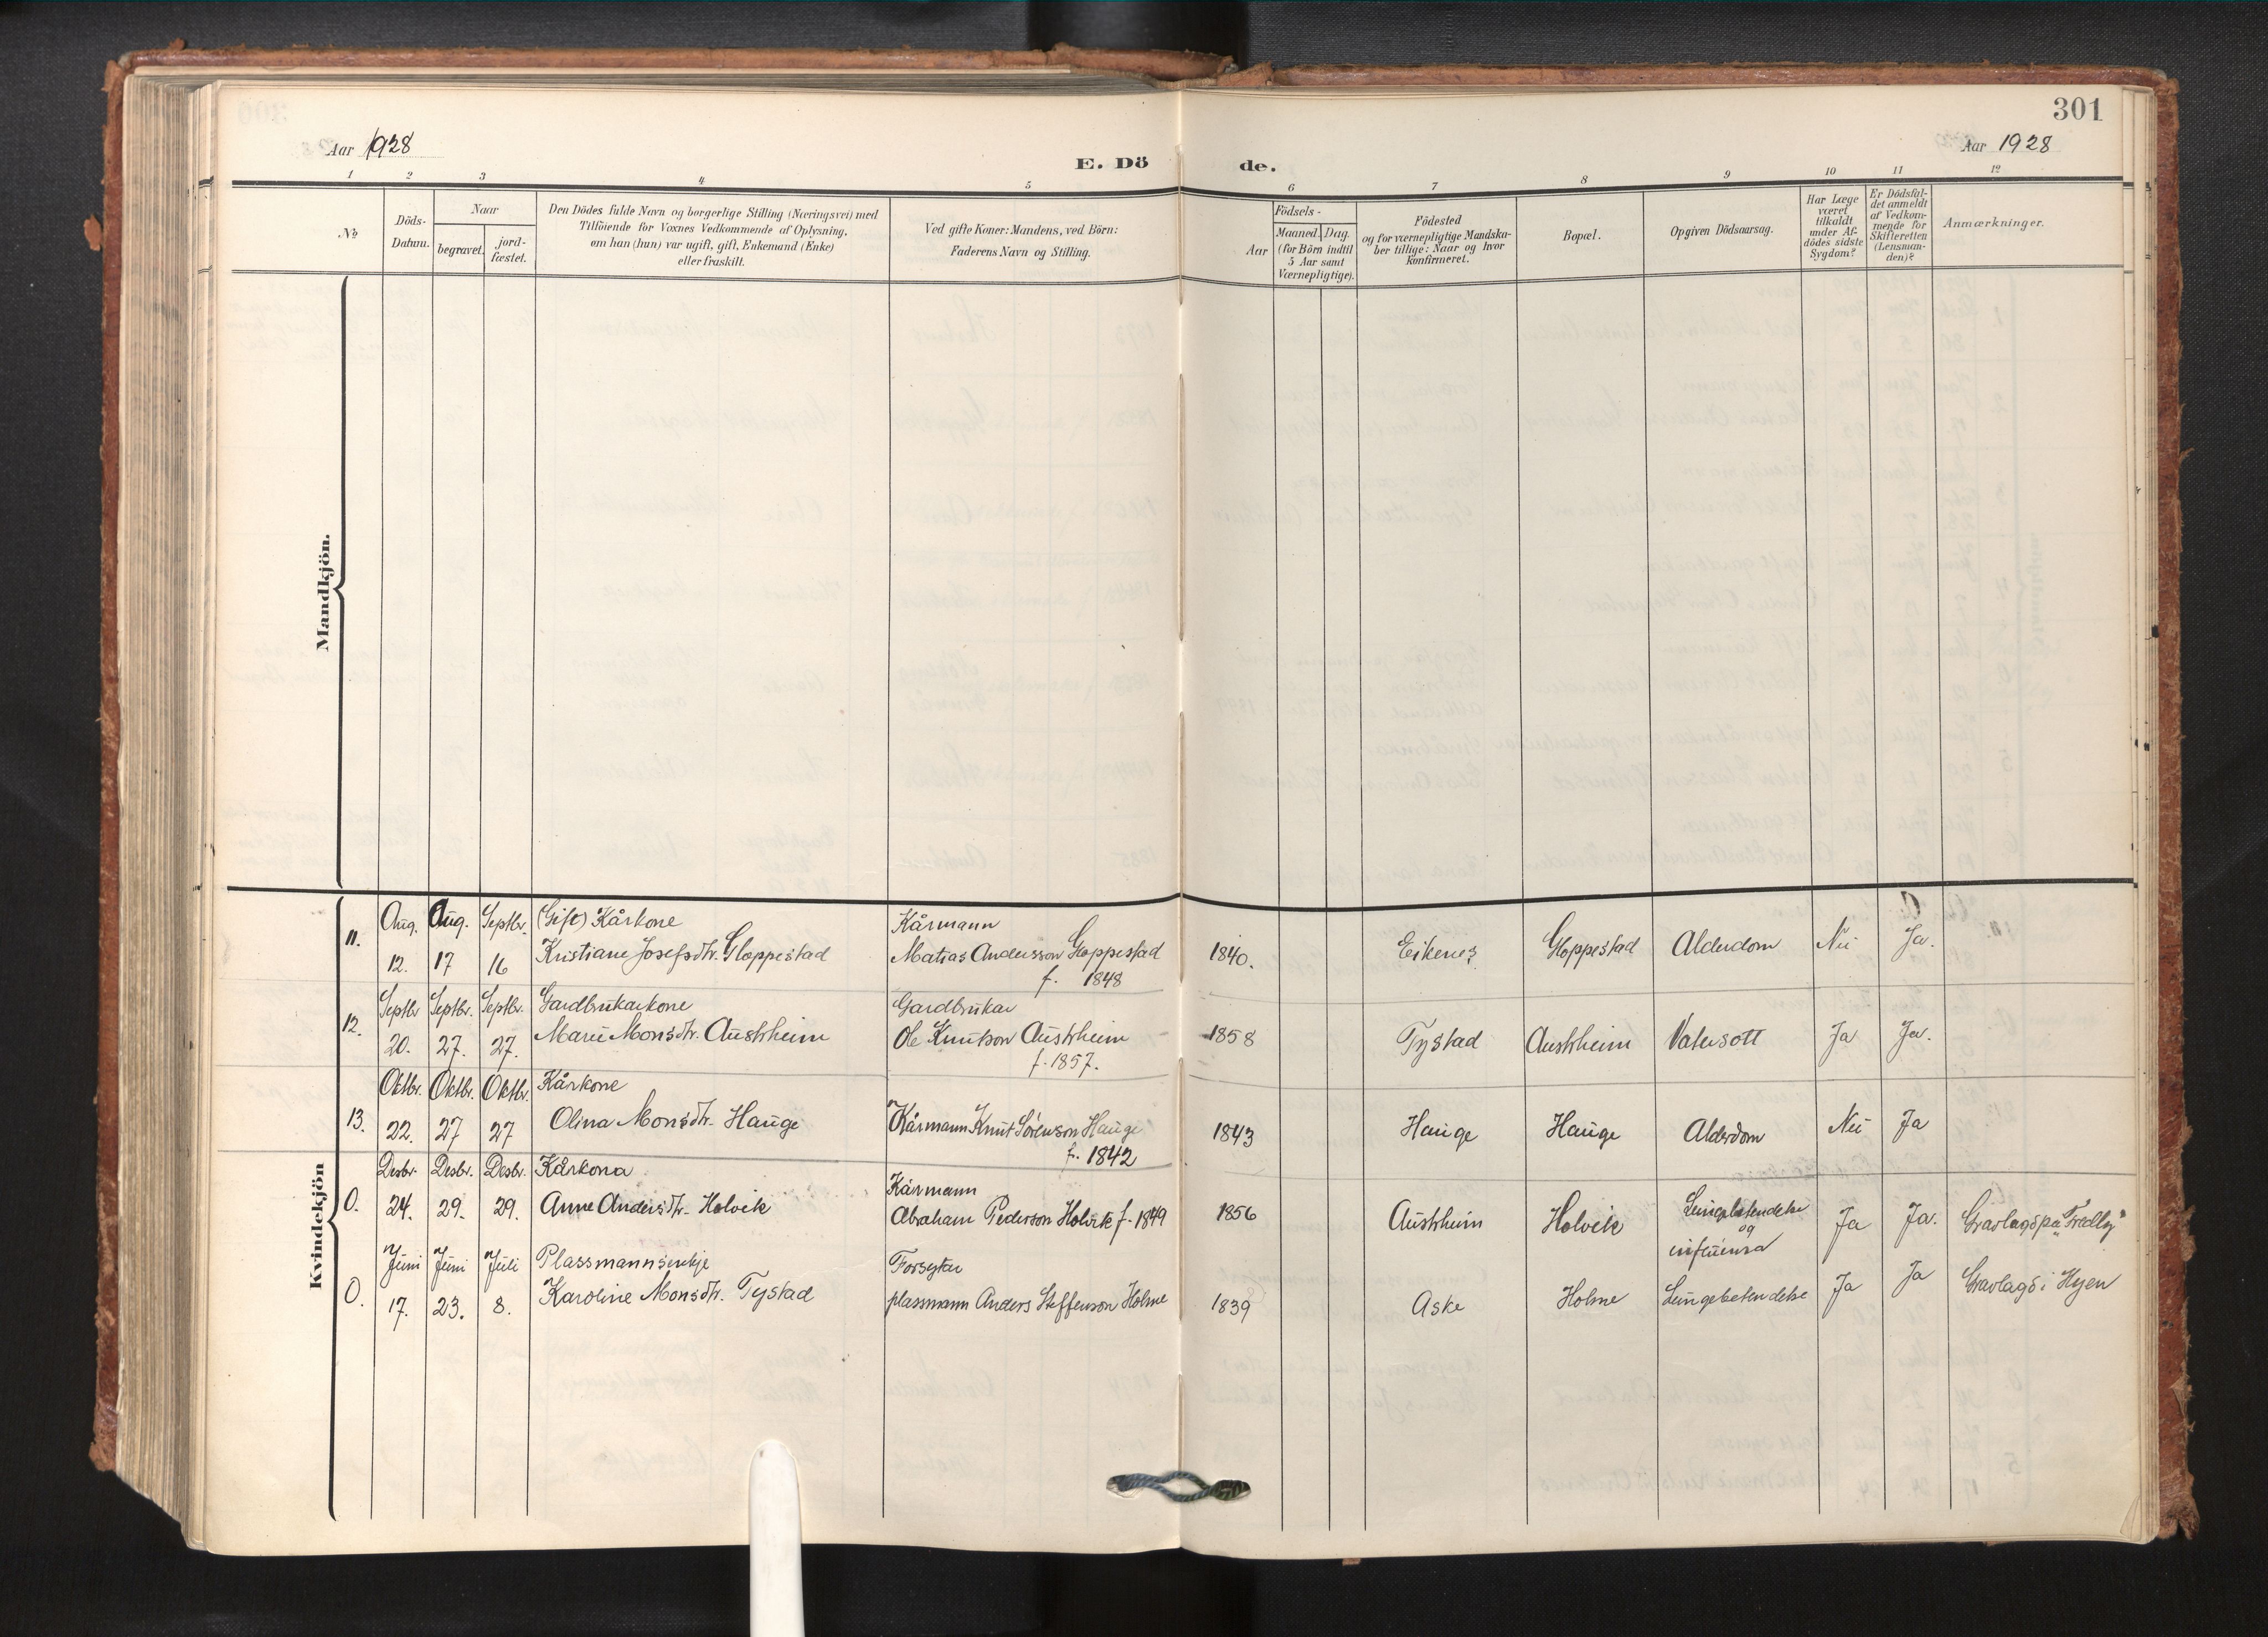 301
Aar 1928
E. Dö de.
Aar 1928
1 2 3 4 5 6 7 8 9 10 11 12
No
Döds-
Datum.
Naar
begravet.
jord-
fæstet.
Den Dödes fulde Navn og borgerlige Stilling (Næringsvei) med
Tilföiende for Voxnes Vedkommende af Oplysning,
om han (hun) var ugift, gift, Enkemand (Enke)
eller fraskilt.
Ved gifte Koner: Mandens, ved Börn:
Faderens Navn og Stilling.
Födsels-
Aar
Maaned.
Dag.
(for Börn indtil
5 Aar samt
Værnepligtige).
Födested
og for værnepligtige Mandska-
ber tillige: Naar og hvor
Konfirmeret.
Bopæl.
Opgiven Dödsaarsag.
Har Læge
været
tilkaldt
under Af-
dödes sidste
Sygdom?
Er Dödsfal-
det anmeldt
af Vedkom-
mende for
Skifteretten
(Lensman-
den)?
Anmærkninger.
Mandkjön.
Kvindekjön
11.
Aug. 12.
Aug. 17
Septbr. 16
(Gift) Kårkone
Kristiane Josefsdtr. Gloppestad
Kårmann
Matias Andersson Gloppestad
f. 1848
1840.
Eikenes
Gloppestad
Alderdom
Nei
Ja.
12.
Septbr 20.
Septbr. 27.
Septbr. 27.
Gardbrukarkone
Marie Monsdtr. Austrheim
Gardbrukar
Ole Knutson Austrheim
f. 1857.
1858
Tystad
Austrheim
Vatersott
Ja
Ja.
13.
Oktbr. 22.
Oktbr. 27
Oktbr. 27
Kårkone
Olina Monsdtr. Hauge
Kårmann Knut Sörenson Hauge
f. 1842
1843
Hauge
Hauge
Alderdom
Nei
Ja
0.
Desbr. 24.
Desbr. 29.
Desbr. 29.
Kårkona
Anne Andersdtr. Holvik
Kårmann
Abraham Pederson Holvik f. 1849
1856
Austrheim
Holvik
Lungebetendelse
og
influensa
Ja
Ja.
Gravlagd på "Fredly"
0.
Juni 17.
Juni 23.
Juli 8.
Plassmannsenkje
Karoline Monsdtr. Tystad
Forsytar
plassmann Anders Steffenson Holme
1839
Aske
Holme
Lungebetendelse
Ja
Ja
Gravlagd i Hyen